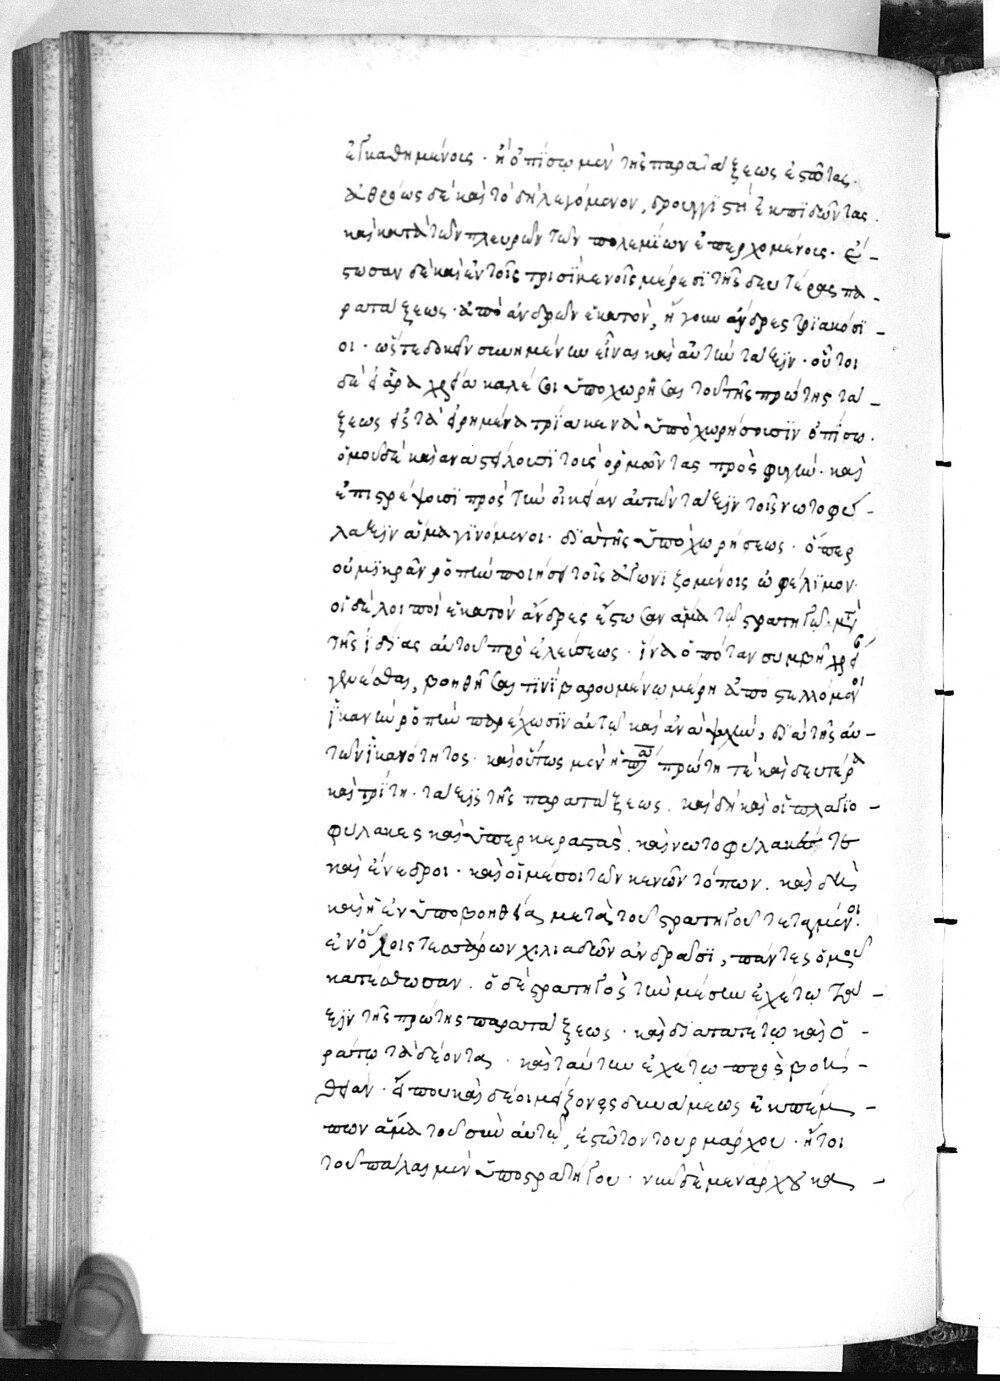 ἐγκαθημένοις · ἢ ὀπίσω μὲν τῆς παρατάξεως ἑστῶτας ·
ἀθρόως δὲ καὶ τὸ δὴ λεγόμενον, δρουγγιστὶ ἐκπιδῶντας ·
καὶ κατὰ τῶν πλευρῶν τῶν πολεμίων ἐπερχομένοις · ἔ-
στωσαν δὲ καὶ ἐν τοῖς τρισὶ κενοῖς μέρεσι τῆς δευτέρας πα-
ρατάξεως · ἀπὸ ἀνδρῶν ἑκατὸν, ἤγουν ἄνδρες τριακόσι-
οι · ὥστε δοκεῖν συνημένην εἶναι καὶ αὐτὴν τάξιν · οὗτοι
δὲ εἰ ἄρα χρεία καλέσοι ὑποχωρῆσαι τοὺς τῆς πρώτης τά-
ξεως εἰς τὰ εἰρημένα τρία κενὰ ὑποχωρήσουσιν ὀπίσω ·
ὁμοῦ δὲ καὶ ἀναστέλουσι τοὺς ὁρμῶντας πρὸς φυγὴν · καὶ
ἐπιστρέψουσι πρὸς τὴν οἰκείαν αὐτῶν τάξιν τοῖς νωτοφύ-
λαξιν ἅμα γινόμενοι · δι' αὐτῆς ὑποχωρήσεως · ὅπερ
οὐ μικρὰν ῥοπὴν ποιήσει τοῖς ἀγωνιζομένοις ὠφέλιμον ·
οἱ δὲ λοιποὶ ἑκατὸν ἄνδρες ἔστωσαν ἅμα τῷ στρατηγῷ · μετὰ
τῆς ἰδίας αὐτοῦ προελεύσεως · ἵνα ὁπόταν συμβῇ χρεία
γενέσθαι, βοηθῆσαι τινὶ βαρουμένῳ μέρη ἀποστελλόμενοι
ἱκανὴν ῥοπὴν παρέχωσιν αὐτῷ καὶ ἀναψυχὴν, δι' αὐτῆς αὐ-
τῶν ἱκανότητος · καὶ οὕτως μὲν ἡ πρώτη τὲ καὶ δευτέρα
καὶ τρίτη · τάξις τῆς παρατάξεως · καὶ δὴ καὶ οἱ πλαγιο-
φύλακες καὶ ὑπερκεραστὰς · καὶ νωτοφύλακας τὲ
καὶ ἔνεδροι · καὶ οἱ μέσοι τῶν κενῶν τόπων · καὶ δὶς
καὶ ἡ ἐν ὑποβοηθείας μετὰ τοῦ στρατηγοῦ τεταγμένοι ·
ἐν ὄχλοις τεσσάρων χιλιάδων ἀνδράσι, πάντες ὁμοῦ
καταίσθωσαν · ὁ δὲ στρατηγὸς τὴν μέσην ἐχέτω τά-
ξιν τῆς πρώτης παρατάξεως · καὶ διαταττέτω καὶ ὁ-
ράτω τὰ δέοντας · καὶ ταύτην ἐχέτω πρὸς βοή-
θειαν · εἴ που καὶ δέοι μείζονος δυνάμεως ἐκπέμ-
πων ἅμα τοῦ σὺν αὐτῷ, ἑστῶτον τουρμάρχου · ἤτοι
τοῦ πάλαι μὲν ὑποστρατήγου · νῦν δὲ μεναρχου κα-